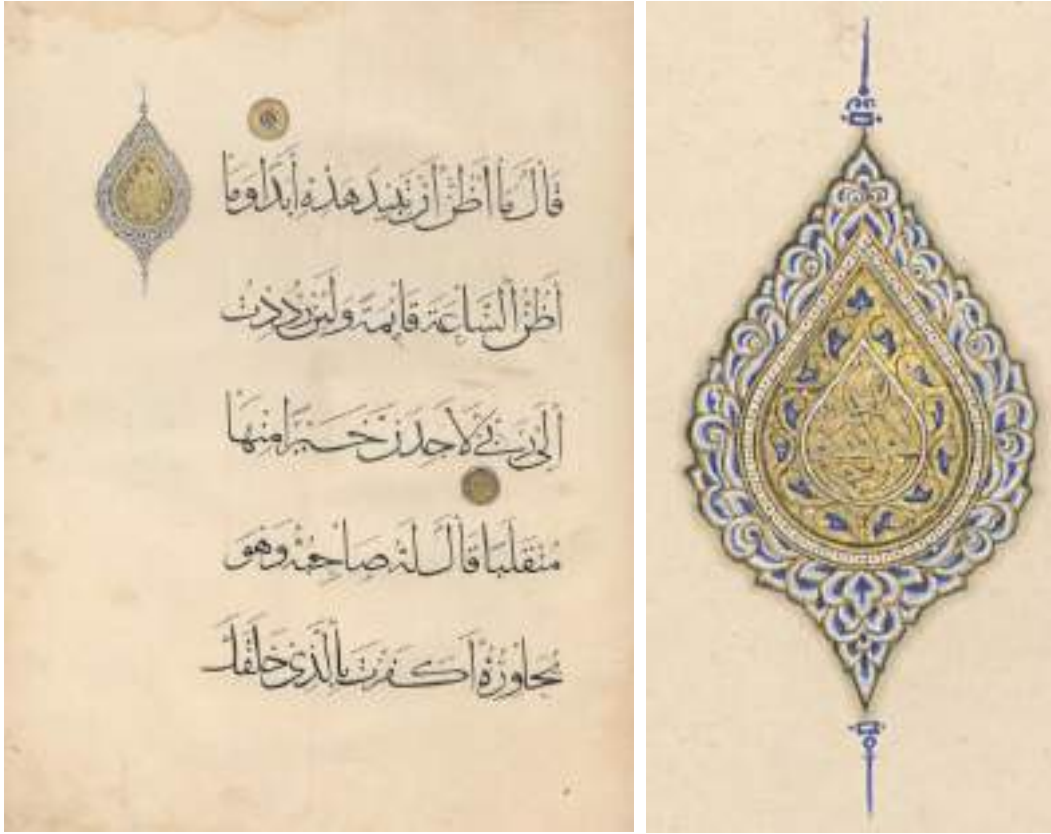 قَالَ مَا أَظُنُّ أَنْ تَبِيدَ هَذِهِ أَبَدًا وَمَا
أَظُنُّ السَّاعَةَ قَائِمَةً وَلَئِنْ رُدِدْتُ
إِلَى رَبِّي لَأَجِدَنَّ خَيْرًا مِنْهَا
مُنْقَلَبًا قَالَ لَهُ صَاحِبُهُ وَهُوَ
يُحَاوِرُهُ أَكَفَرْتَ بِالَّذِي خَلَقَكَ